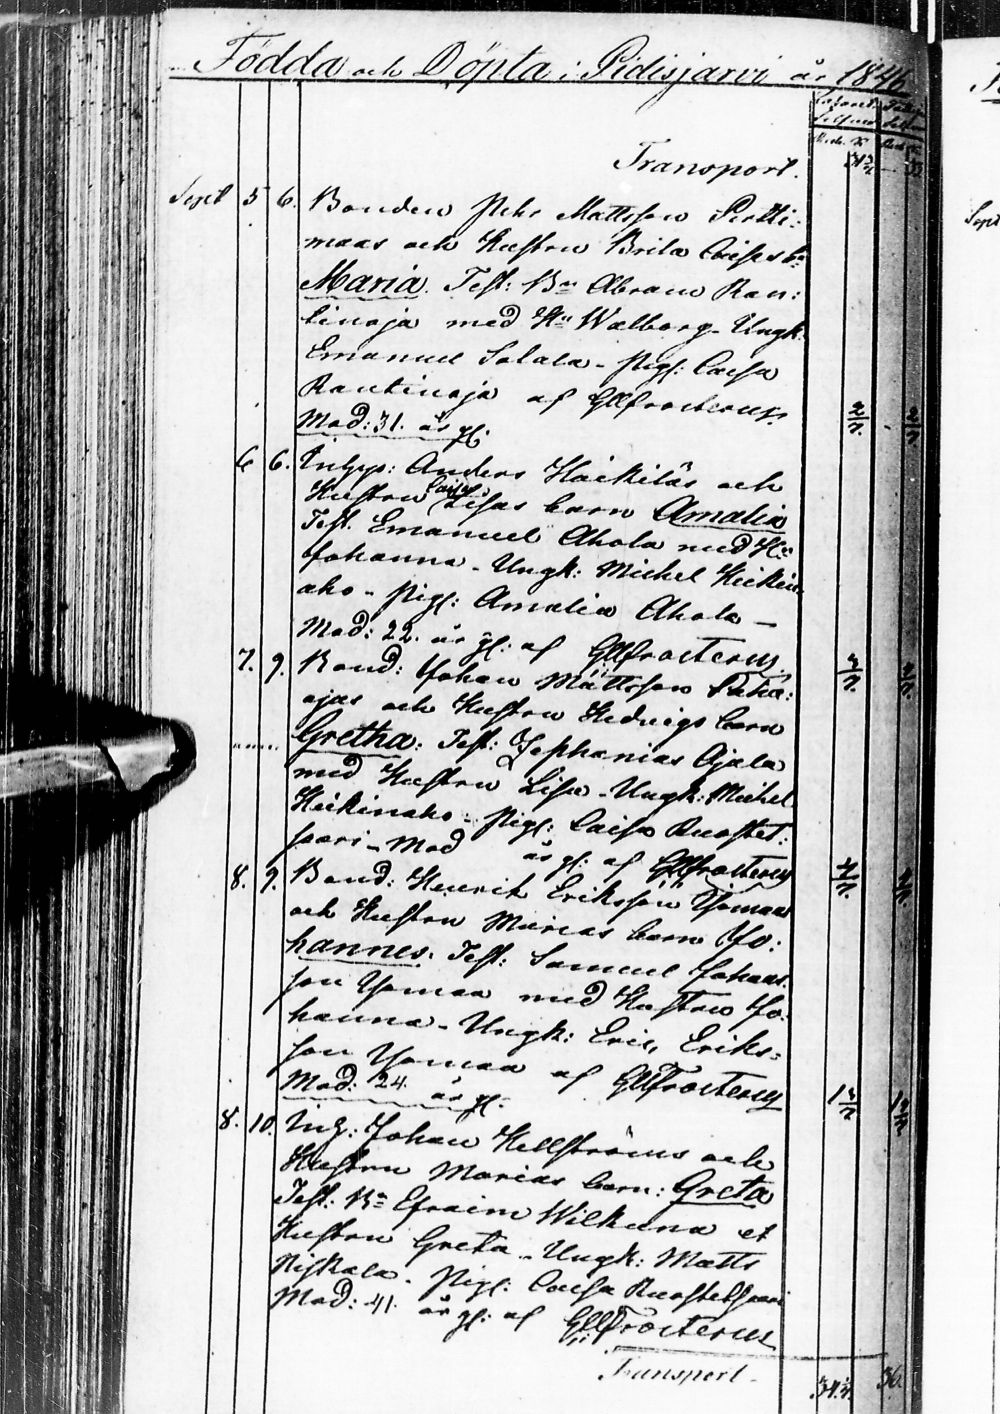 Födda och Döpta i Pidisjärvi år 1846
Transport.
Sept 5 6. Bonden Pehr Mattsson Pertti-
maas och Hustru Brita Caisas bn
Maria. Test: Bn Abram Ran-
tinoja med Hu Walborg - Ungk:
Emanuel Salala - Pig: Caisa
Rautinoja af GHFrosterus
Mod: 31. år gl.
6 6. Inhys: Anders Häikiläs och
Hustru Caisa Lisas barn Amalia
Test. Emanuel Ahola med Hu
Johanna - Ungk: Michel Heikin-
aho - Pig: Amalia Ahola -
Mod: 22. år gl: af GHFrosterus.
7. 9. Bond: Johan Mattsson
ojas och Hustru Hedvigs barn
Gretha: Test: Zephanias Ojala
med Hustru Lisa - Ungk: Michel
Heikinaho - Pig: Caisa Ruostet:
saari - Mod år gl: af GHFrosterus
8. 9. Bond: Henrik Eriksson
och Hustru Marias barn Jo:
hannes. Test: Samuel Johans
son med Hustru Jo:
hanna - Ungk: Eric, Eriks:
son af GHFrosterus
Mod: 24. år gl.
8. 10. Inh: Johan Hellströms och
Hustru Marias barn: Greta
Test: Bn Efraim Wilkuna et
Hustru Greta - Ungk: Matts
Niskala - Pig: Caisa Ruostetsaari
Mod: 41. år gl: af GHFrosterus
Transport